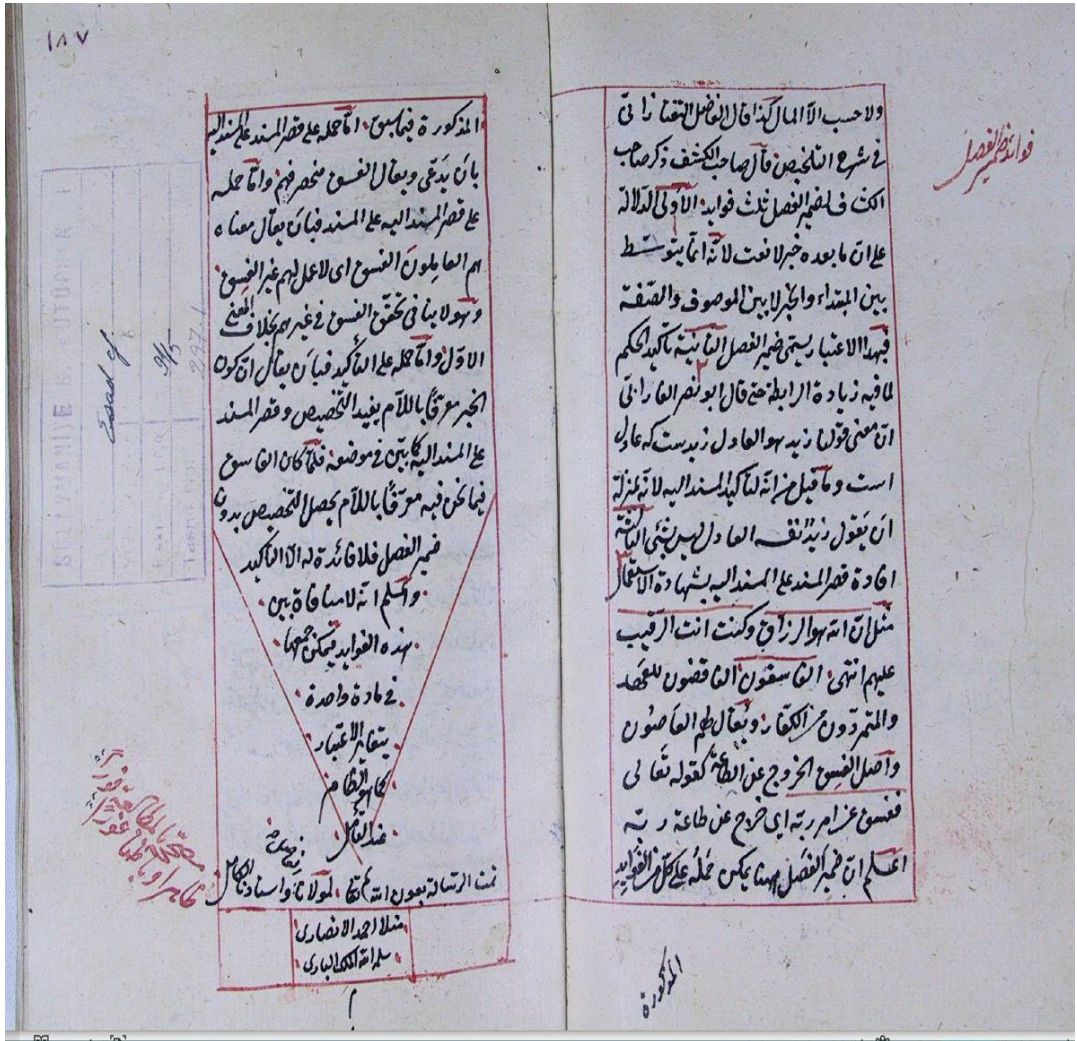 فوائد ضمير الفصل
ولا حسب الا المال كذا قال الفاضل التفتازاني
في شرح التلخيص قال صاحب الكشف ذكر صاحب
الكشاف لضمير الفصل ثلث فوايد الأولى الدلالة
على ان ما بعده خبر لا نعت لانه انما يتوسط
بين المبتداء والخبر لا بين الموصوف والصفة
فبهذا الاعتبار يسمى ضمير الفصل الثانية تأكيد الحكم
لما فيه زيادة الرابطة حتى قال ابو نصر الفارابي
ان معنى قولنا زيد هو العادل زيدست كه عادل
است وما قيل من انه لتأكيد المسند اليه لانه بمنزلة
ان يقول زيد نفسه العادل ليس بشئ الثالثة
افادة قصر المسند على المسند اليه بشهادة الاستعمال
مثل ان الله هو الرزاق وكنت انت الرقيب
عليهم انتهى الفاسقون الناقضون للعهد
والمتمردون من الكفار ويقال لهم العاصون
واصل الفسق الخروج عن الطاعة كقوله تعالى
ففسق عن امر ربه اي خرج عن طاعة ربه
اعلم ان ضمير الفصل ههنا يمكن حمله على كل من الفوايد
المذكورة
١٨٧
المذكورة فيما سبق اما حمله على قصر المسند على المسند اليه
بان يدعى ويقال الفسق منحصر فيهم واما حمله
على قصر المسند اليه على المسند فبان يقال معناه
هم العاملون الفسق اى لا عمل لهم غير الفسق
وهو لا ينافى تحقق الفسق في غيرهم بخلاف المعنى
الاول واما حمله على التأكيد فبان يقال ان كون
الخبر معرفا باللام يفيد التخصيص وقصر المسند
على المسند اليه كما بين في موضعه فلما كان الفاسق
فيما نحن فيه معرفا باللام يحصل التخصيص بدون
ضمير الفصل فلا فائدة له الا التأكيد
واعلم انه لا منافاة بين
هذه الفوايد فيمكن جمعها
في مادة واحدة
بتغاير الاعتبار
كما هو الظاهر
عند التأمل
تمت الرسالة بعون الله تعالى لمولانا واستادنا الكامل
منلا احمد الانصارى
سلمه الله الملك البارى
SULEYMANIYE G. KUTUPHANESI
Esad ef
Eski
Tasnif No.
297.1